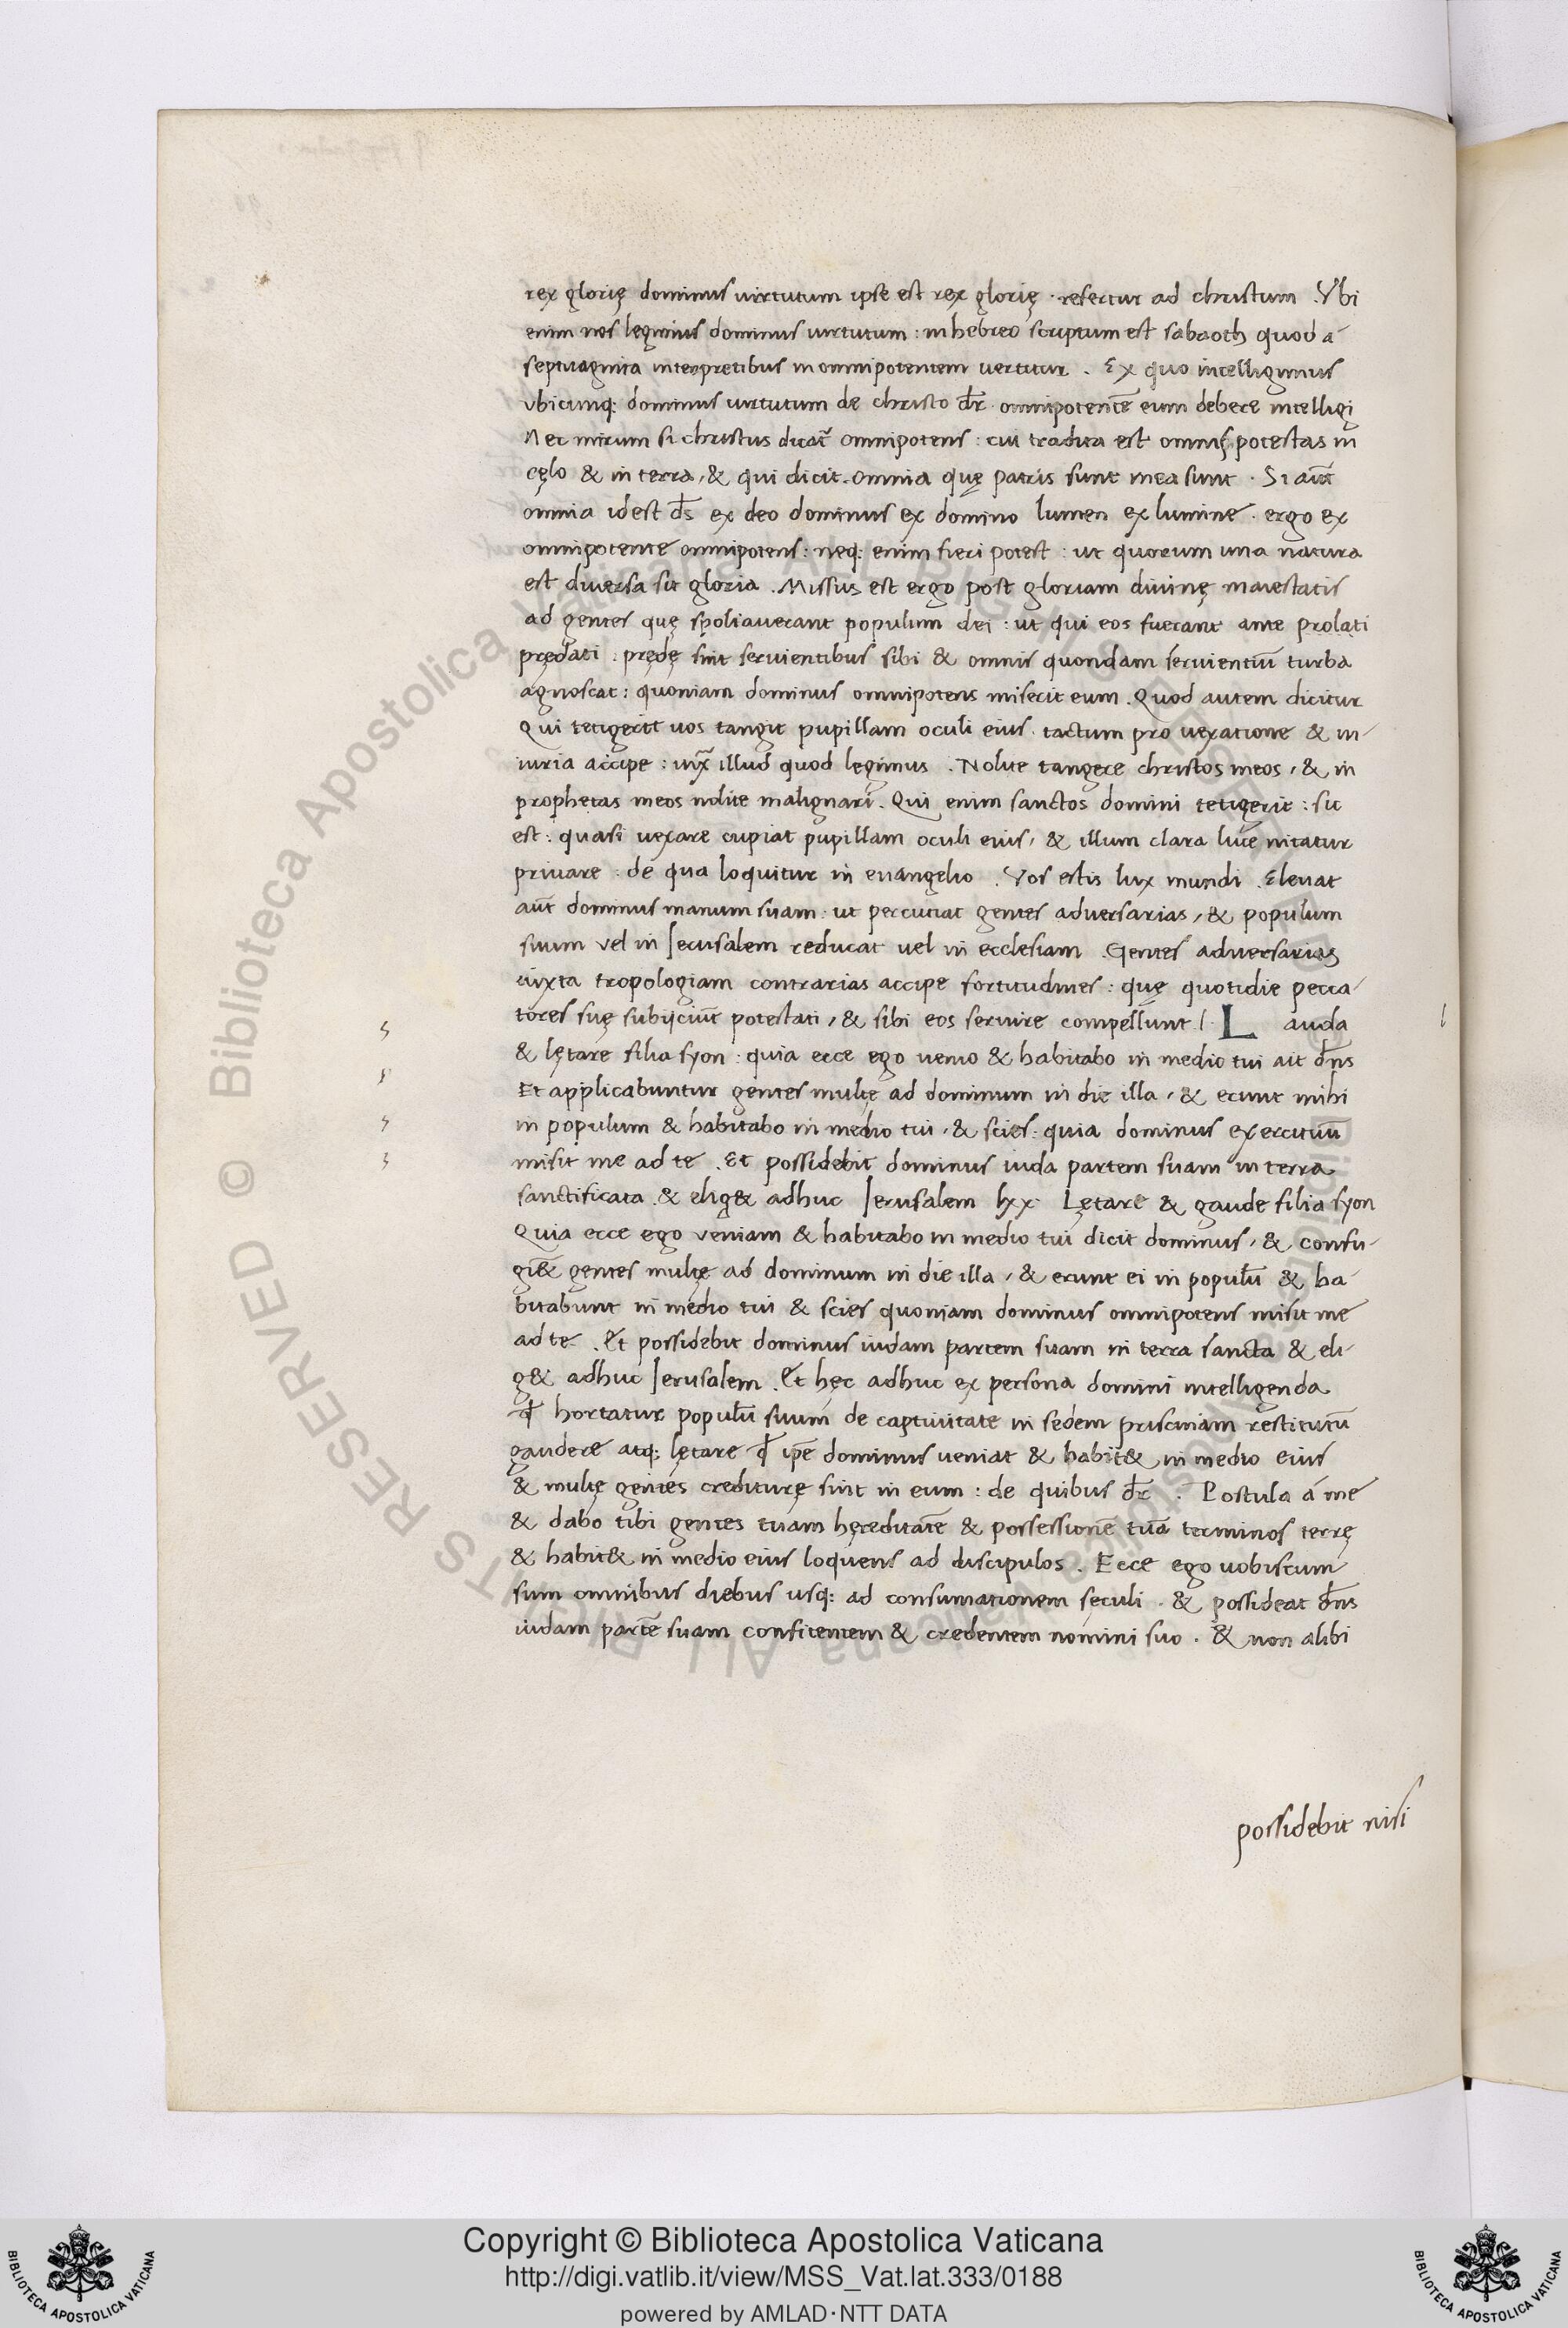 rex glorię dominus uirtutum ipse est rex glorię · refertur ad christum . Vbi
enim nos legimus dominus uirtutum : in hebreo scriptum est sabaoth quod a
septuaginta interpretibus in omnipotentem uertitur . Ex quo intelligimus
vbicunq: dominus uirtutum de christo dr̄ · omnipotentē eum debere intelligi
Nec mirum si christus dicat̄ omnipotens : cui tradita est omnis potestas in
cęlo & in terra, & qui dicit. omnia quę patris sunt mea sunt . Si aūt
omnia idest ds̄ ex deo dominus ex domino lumen ex lumine · ergo ex
omnipotente omnipotens : neq: enim fieri potest : ut quorum una natura
est diuersa sit gloria . Missus est ergo post gloriam diuinę maiestatis
ad gentes quę spoliauerant populum dei : ut qui eos fuerant ante prolati
pręđati : prędę sint seruientibus sibi & omnis quondam seruientiū turba
agnoscat : quoniam dominus omnipotens miserit eum . Quod autem dicitur
Qui tetigerit uos tangit pupillam oculi eius · tactum pro uexatione & in-
iuria accipe : iux̄ illud quod legimus . Nolite tangere christos meos, & in
prophetas meos nolite malignari . Qui enim sanctos domini tetigerit : sic
est : quasi uexare cupiat pupillam oculi eius, & illum clara luce nitatur
priuare : de qua loquitur in euangelio . Vos estis lux mundi . Eleuat
aūt dominus manum suam : ut percutiat gentes aduersarias, & populum
suum vel in Jerusalem reducat uel in ecclesiam . Gentes aduersarias
iuxta tropologiam contrarias accipe fortitudines : quę quotidie pecca-
tores suę subijciūt potestati, & sibi eos seruire compellunt . Lauda
& lętare filia syon : quia ecce ego uenio & habitabo in medio tui ait dn̄s
Et applicabuntur gentes multę ad dominum in die illa, & erunt mihi
in populum & habitabo in medio tui, & scies : quia dominus exercituū
misit me ad te . Et possidebit dominus iuda partem suam in terra
sanctificata . & elig& adhuc Jerusalem lxx · Lętare & gaude filia syon
Quia ecce ego veniam & habitabo in medio tui dicit dominus, & confu-
giē& gentes multę ad dominum in die illa, & erunt ei in populū & ha-
bitabunt in medio tui & scies quoniam dominus omnipotens misit me
ad te . Et possidebit dominus iudam partem suam in terra sancta & eli-
g& adhuc Jerusalem . Et hęc adhuc ex persona domini intelligenda
q̄ hortatur populū suum de captiuitate in sedem priscinam restitutū
gaudere atq: lętare q̄ ip̄e dominus ueniat & habit& in medio eius
& multę gentes crediturę sint in eum : de quibus dr̄ . Postula a me
& dabo tibi gentes tuam hęreditatē & possessionē tuā terminos terrę
& habit& in medio eius loquens ad discipulos . Ecce ego uobiscum
sum omnibus diebus usq: ad consumationem seculi . & possideat dn̄s
iudam partē suam confitentem & credentem nomini suo . & non alibi
possidebit nisi
© Biblioteca Apostolica Vaticana ALL RIGHTS RESERVED
Copyright © Biblioteca Apostolica Vaticana
http://digi.vatlib.it/view/MSS_Vat.lat.333/0188
powered by AMLAD·NTT DATA
BIBLIOTECA APOSTOLICA VATICANA
BIBLIOTECA APOSTOLICA VATICANA